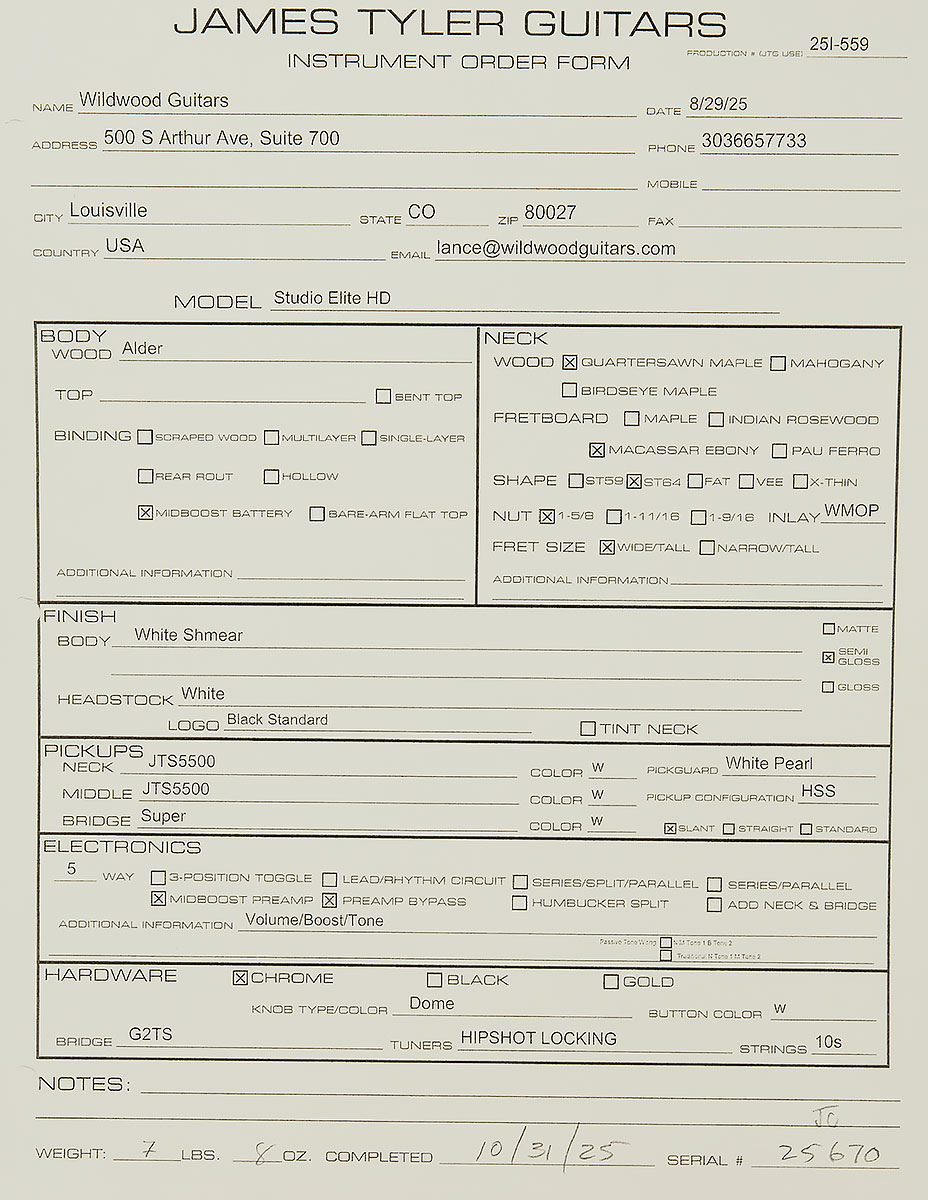 JAMES TYLER GUITARS
INSTRUMENT ORDER FORM
PRODUCTION # (JTG USE) 25I-559
NAME Wildwood Guitars DATE 8/29/25
ADDRESS 500 S Arthur Ave, Suite 700 PHONE 3036657733
MOBILE
CITY Louisville STATE CO ZIP 80027 FAX
COUNTRY USA EMAIL lance@wildwoodguitars.com
MODEL Studio Elite HD
BODY
WOOD Alder
TOP BENT TOP
BINDING SCRAPED WOOD MULTILAYER SINGLE-LAYER
REAR ROUT HOLLOW
☒ MIDBOOST BATTERY BARE-ARM FLAT TOP
ADDITIONAL INFORMATION
NECK
WOOD ☒ QUARTERSAWN MAPLE MAHOGANY
BIRDSEYE MAPLE
FRETBOARD MAPLE INDIAN ROSEWOOD
☒ MACASSAR EBONY PAU FERRO
SHAPE ST59 ☒ ST64 FAT VEE X-THIN
NUT ☒ 1-5/8 1-11/16 1-9/16 INLAY WMOP
FRET SIZE ☒ WIDE/TALL NARROW/TALL
ADDITIONAL INFORMATION
FINISH
BODY White Shmear
MATTE
☒ SEMI GLOSS
GLOSS
HEADSTOCK White
LOGO Black Standard TINT NECK
PICKUPS
NECK JTS5500 COLOR W PICKGUARD White Pearl
MIDDLE JTS5500 COLOR W PICKUP CONFIGURATION HSS
BRIDGE Super COLOR W ☒ SLANT STRAIGHT STANDARD
ELECTRONICS
5 WAY 3-POSITION TOGGLE LEAD/RHYTHM CIRCUIT SERIES/SPLIT/PARALLEL SERIES/PARALLEL
☒ MIDBOOST PREAMP ☒ PREAMP BYPASS HUMBUCKER SPLIT ADD NECK & BRIDGE
ADDITIONAL INFORMATION Volume/Boost/Tone
Passive Tone Wiring N M Tone 1 B Tone 2
Traditional N Tone 1 M Tone 2
HARDWARE ☒ CHROME BLACK GOLD
KNOB TYPE/COLOR Dome BUTTON COLOR W
BRIDGE G2TS TUNERS HIPSHOT LOCKING STRINGS 10s
NOTES:
WEIGHT: 7 LBS. 8 OZ. COMPLETED 10/31/25 SERIAL # 25670